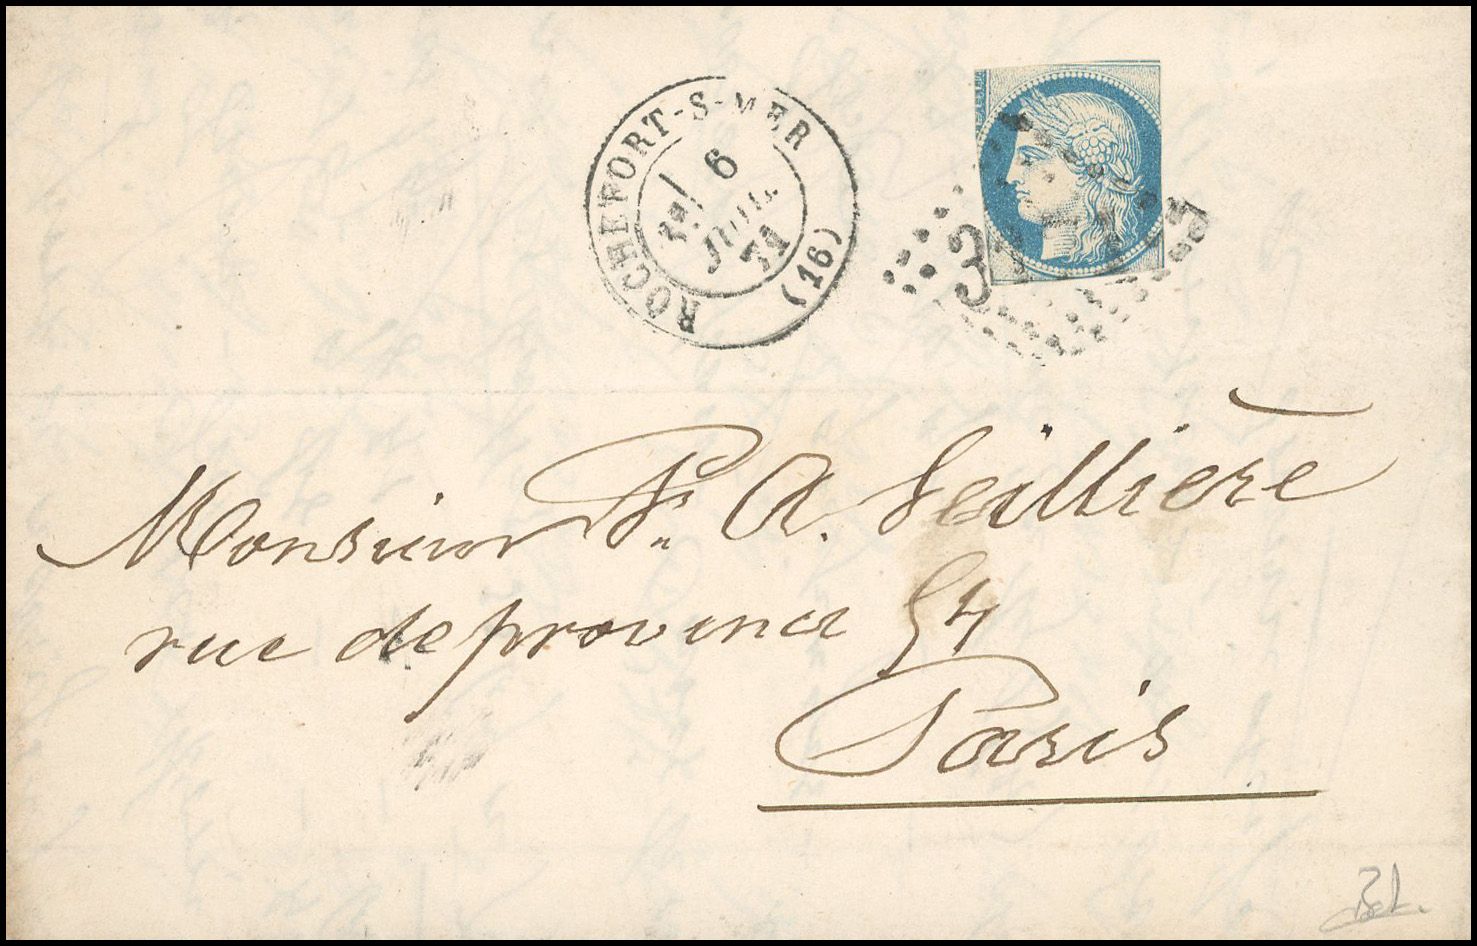 ROCHEFORT-S-MER (16)
6
JUIL.
71
Monsieur Fr. A. Seillière
rue de provence 54
Paris